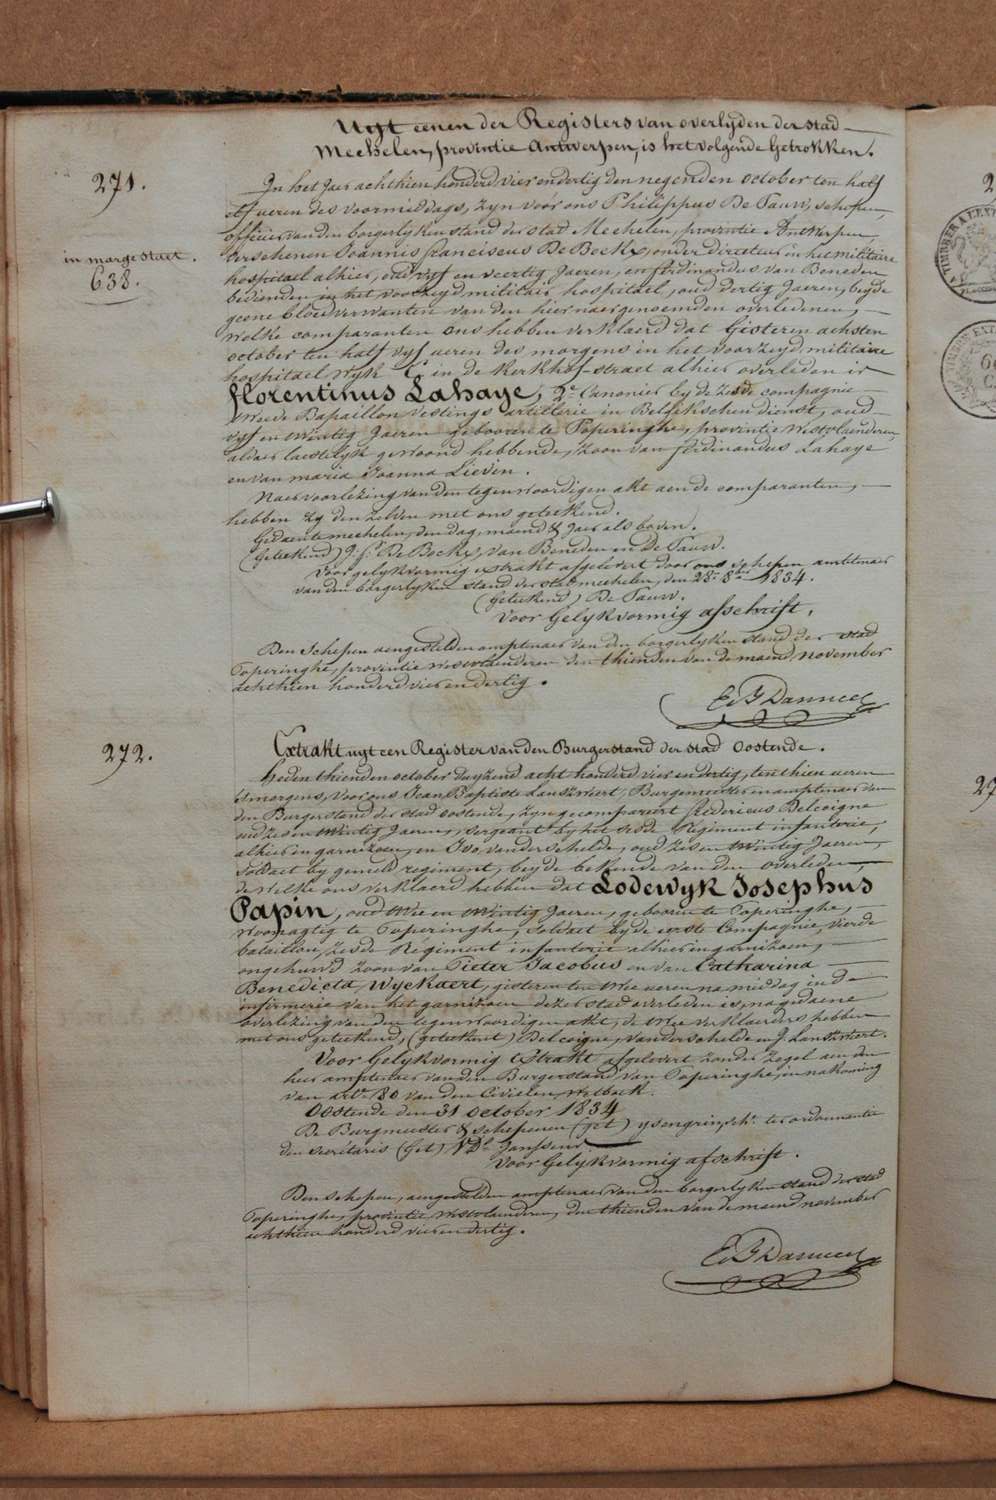 Uyt eenen der Registers van overlyden der stad
Mechelen, provintie Antwerpen, is het volgende Getrokken.
271.
In het Jaer achthien honderd vier en dertig den negenden october ten half
elf ueren des voormiddags, zyn voor ons Philippus De Pauw, schepen,
officier van den borgerlyken stand der stad Mechelen, provintie Antwerpen,
verschenen Joannis franciscus De Bockx, onder directeur in het militaire
in marge staet.
638.
hospitael alhier, oud vyf en veertig Jaeren, en ferdinandus van Beneden
bedienden in het voorzeyd militair hospitael, oud dertig Jaeren, beyde
geene bloedverwanten van den hier naergenoemden overledenen,
welke comparanten ons hebben verklaerd dat Gisteren achsten
october ten half vyf ueren des morgens in het voorzeyd militaire
hospitael Wyk C in de Kerkhof straet alhier overleden is
florentinus Lahaye, 2e Canonier by de zesde compagnie
tweede Bataillon vestings artillerie in Belgischen dienst, oud
vyf en twintig Jaeren gebooren te Poperinghe, provintie westvlaenderen,
aldaer laestelyk gewoond hebbende, zoon van ferdinandus Lahaye
en van maria Joanna Lieven.
Naer voorlezing van den tegenwoordigen akt aen de comparanten,
hebben zy den zelven met ons geteekend.
Gedaen te mechelen, den dag, maend & Jaer als boven.
(Geteekend) J. fs De Bockx, van Beneden en De Pauw.
voor gelykvormig extrakt afgelevert door ons schepen ambtenaer
van den borgerlyken stand der stad mechelen, den 28n 8ber 1834.
(Geteekend) De Pauw.
voor Gelykvormig afschrift.
Den Schepen aengestelden amptenaer van den borgerlyken stand der stad
Poperinghe, provintie westvlaenderen den thienden van de maend november
achthien honderd vier en dertig.
272.
Extrakt uyt een Register van den Burgerstand der stad Oostende.
Heden thienden october duyzend acht honderd vier en dertig, ten thien ueren
'smorgens, voor ons Jean Baptiste Lanszweert, Burgemeester en amptenaer van
den Burgerstand der stad oostende, zyn gecompareert frédericus Delcoigne
oud zes en twintig Jaeren, sergeant by het zesde Regiment infanterie,
alhier in garnizoen, en Ivo vanderschelde, oud zes en twintig Jaeren,
soldaet by gemeld regiment, beyde bekende van den overleden,
de welke ons verklaerd hebben dat Lodewyk Josephus
Papin, oud twee en twintig Jaeren, gebooren te Poperinghe,
woonagtig te Poperinghe, soldaet by de eerste Compagnie, vierde
bataillon, zesde Regiment infanterie alhier in garnizoen,
ongehuwd zoon van Pieter Jacobus en van Catharina
Benedicta Wyckaert, gisteren ten twee ueren namiddag in de
infirmerie van het garnizoen dezer stad overleden is, na gedaene
overlezing van den tegenwoordigen akt, de twee verklaerders hebben
met ons geteekend, (geteekent) Delcoigne, vanderschelde en J. Lanszweert.
Voor Gelykvormig extrakt afgelevert zonder zegel aen den
heer amptenaer van den Burgerstand van Poperinghe, in nakoming
van artle 80 van den Civielen wetboek.
Oostende den 31 october 1834
De Burgmeester & schepenen (get) ysengrin, schn ter ordonnantie
den secrétaris (Get) Jansseur.
voor Gelykvormig afschrift.
Den schepen, aengestelden amptenaer van den borgerlyken stand der stad
Poperinghe, provintie westvlaenderen, den thienden van de maend november
achthien honderd vier en dertig.